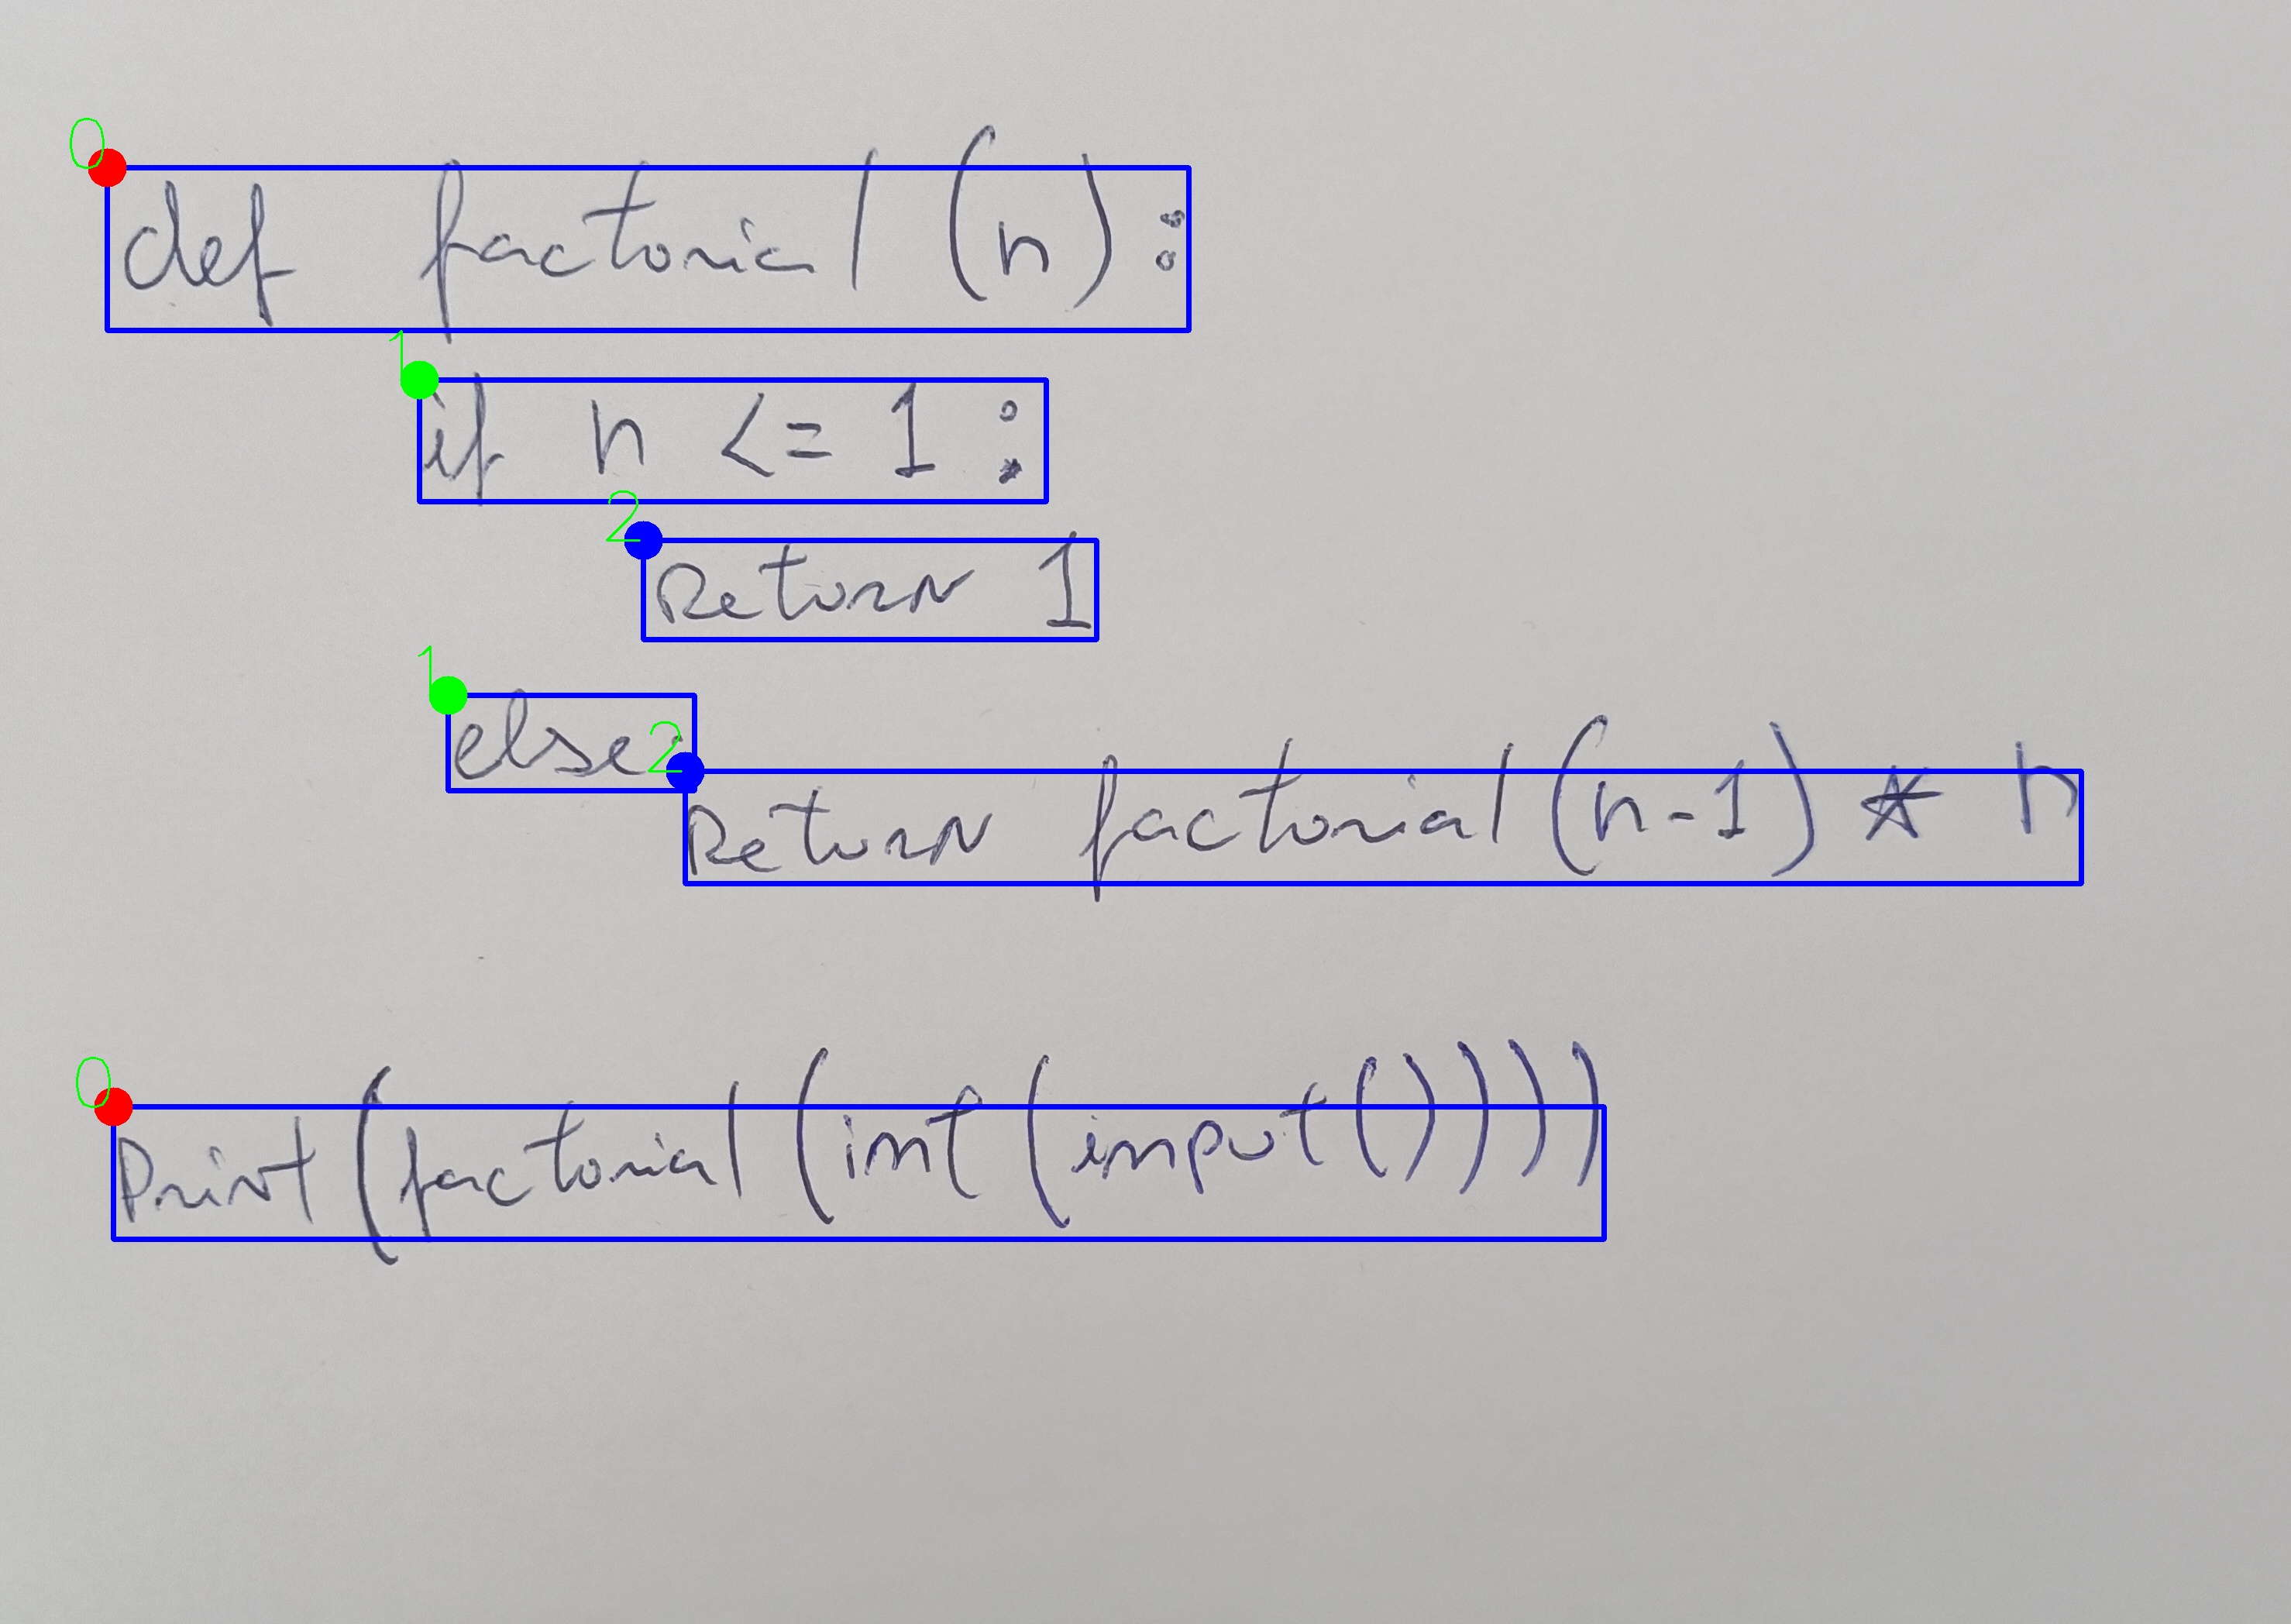 0
def factorial (n):
1
if n <= 1 :
2
Return 1
1
else:
2
Return factorial (n-1) * n
0
Print (factorial (int (input ())))